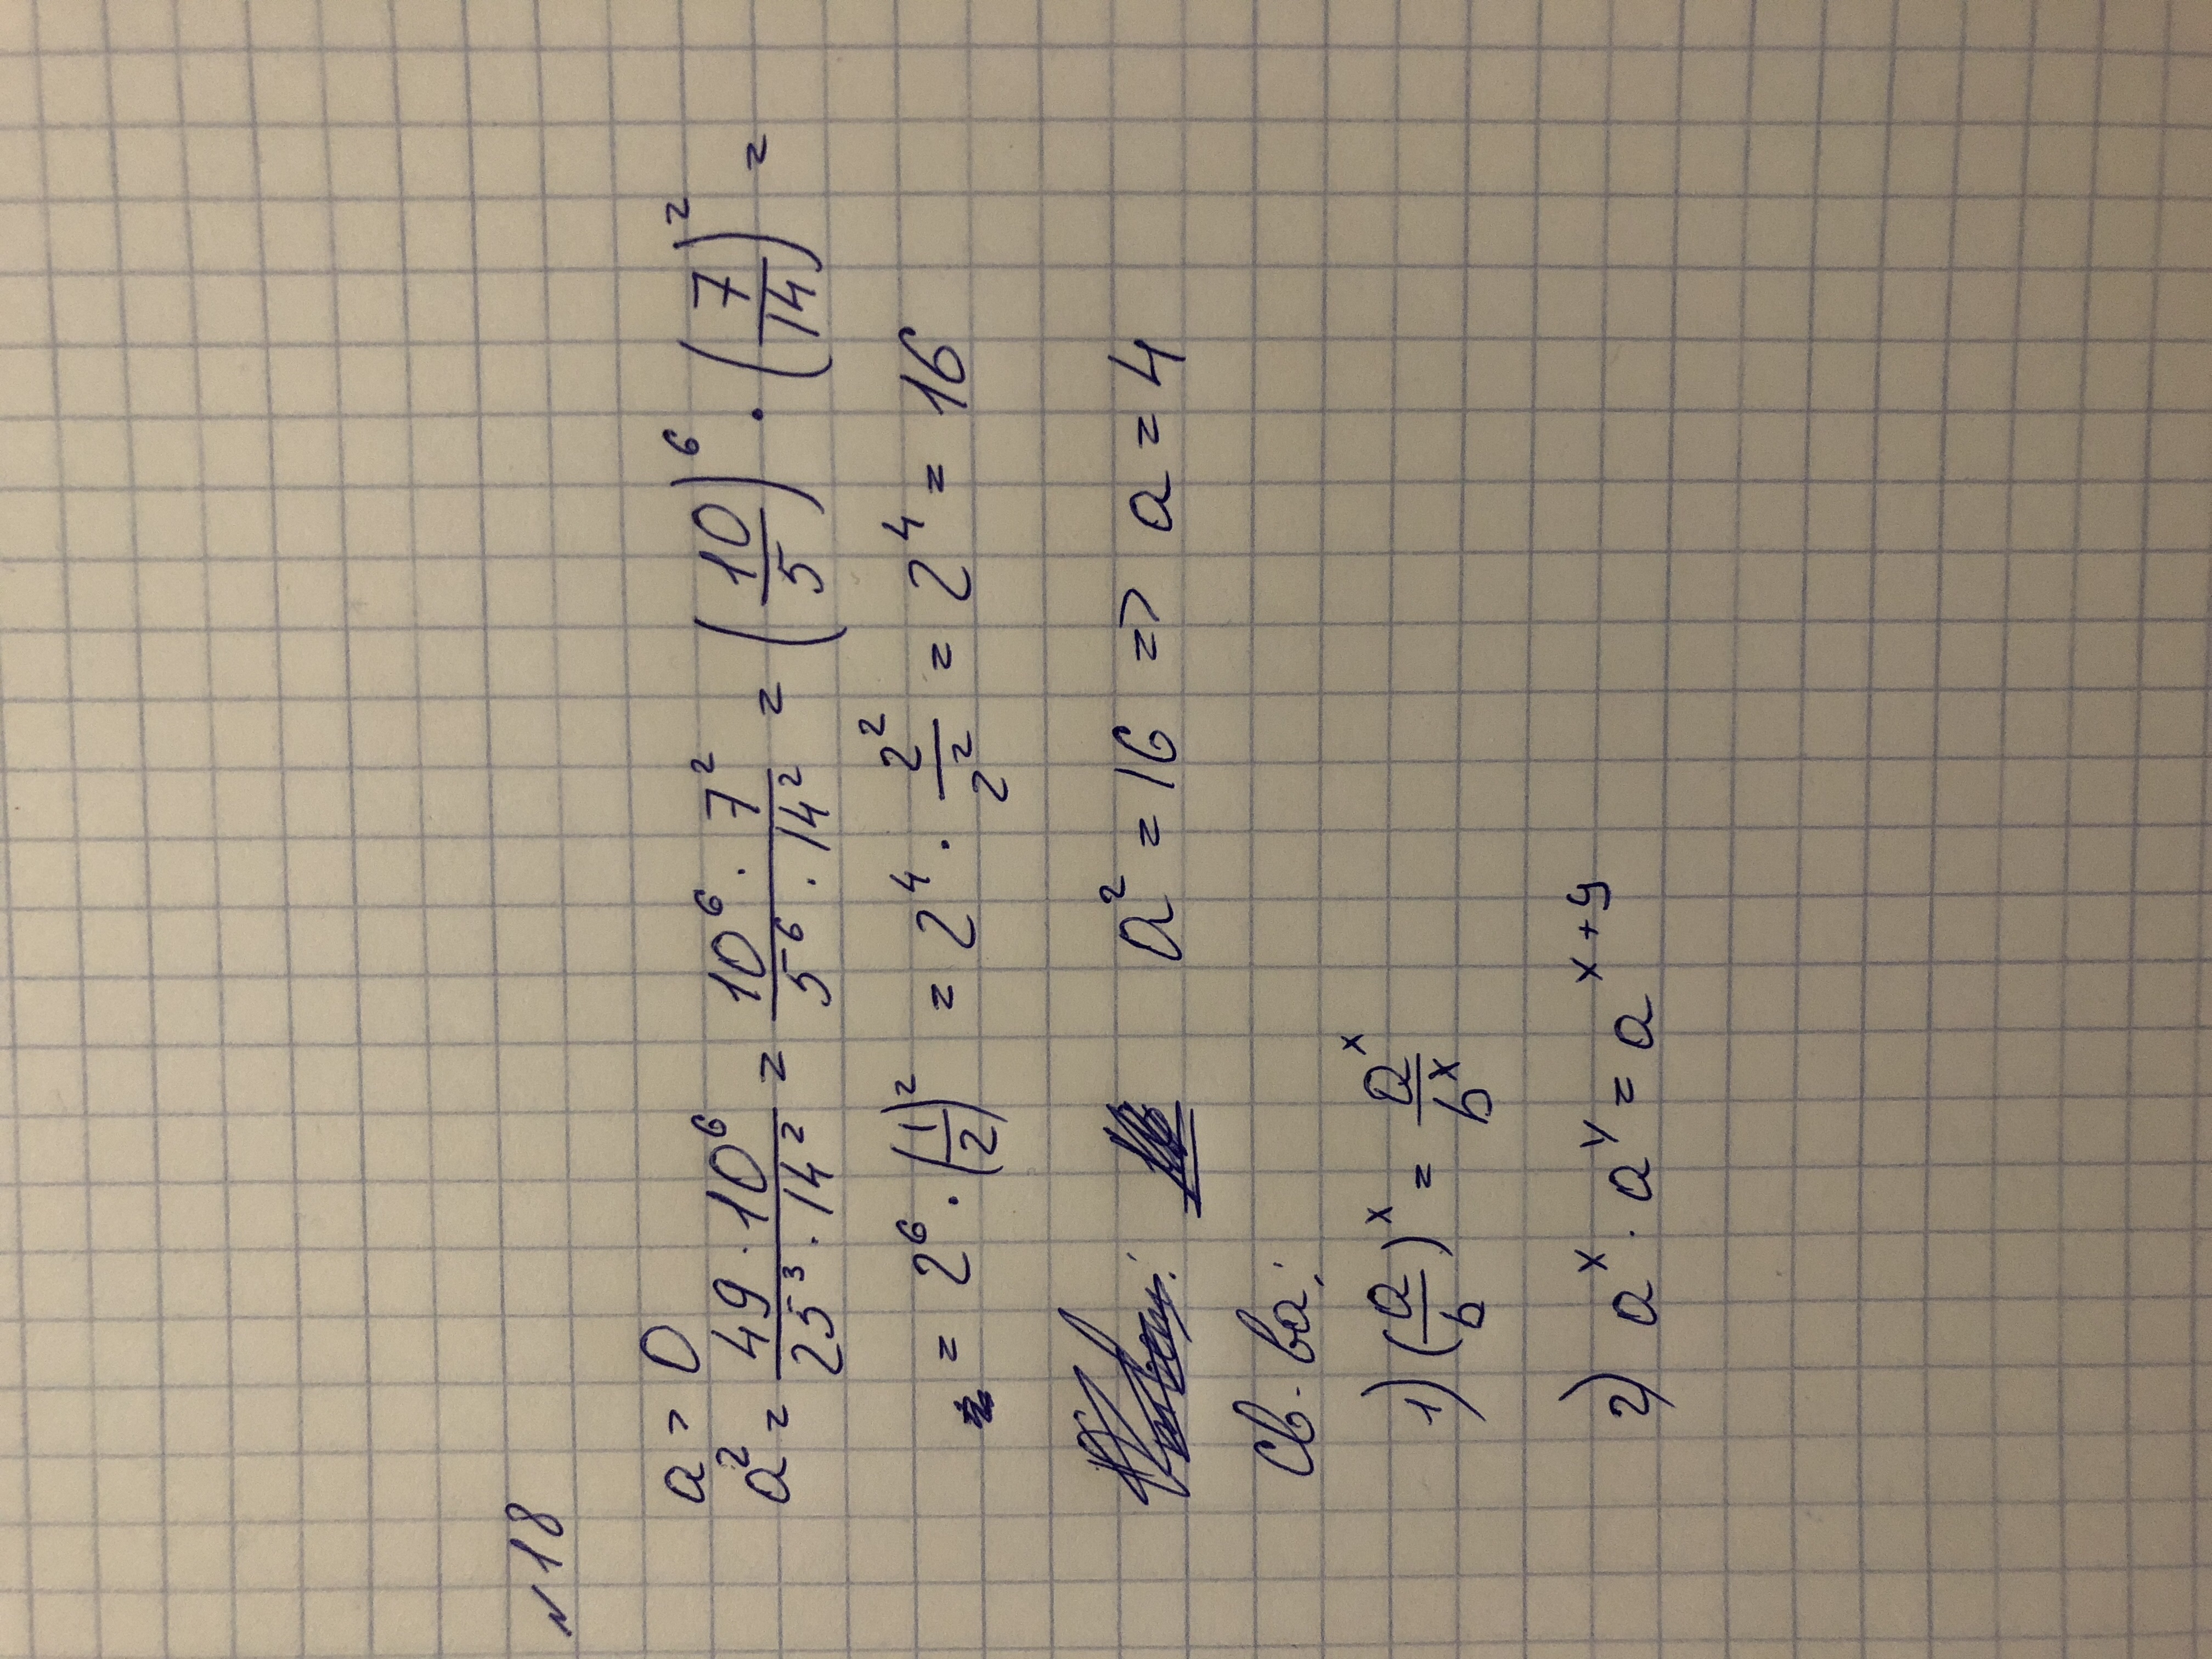 №18
a > 0
a² = (49 · 10⁶)/(25³ · 14²) = (10⁶ · 7²)/(5⁶ · 14²) = (10/5)⁶ · (7/14)² =
= 2⁶ · (1/2)² = 2⁴ · 2²/2² = 2⁴ = 16
a² = 16 => a = 4
Св-ва:
1) (a/b)ˣ = aˣ/bˣ
2) aˣ · aʸ = aˣ⁺ʸ